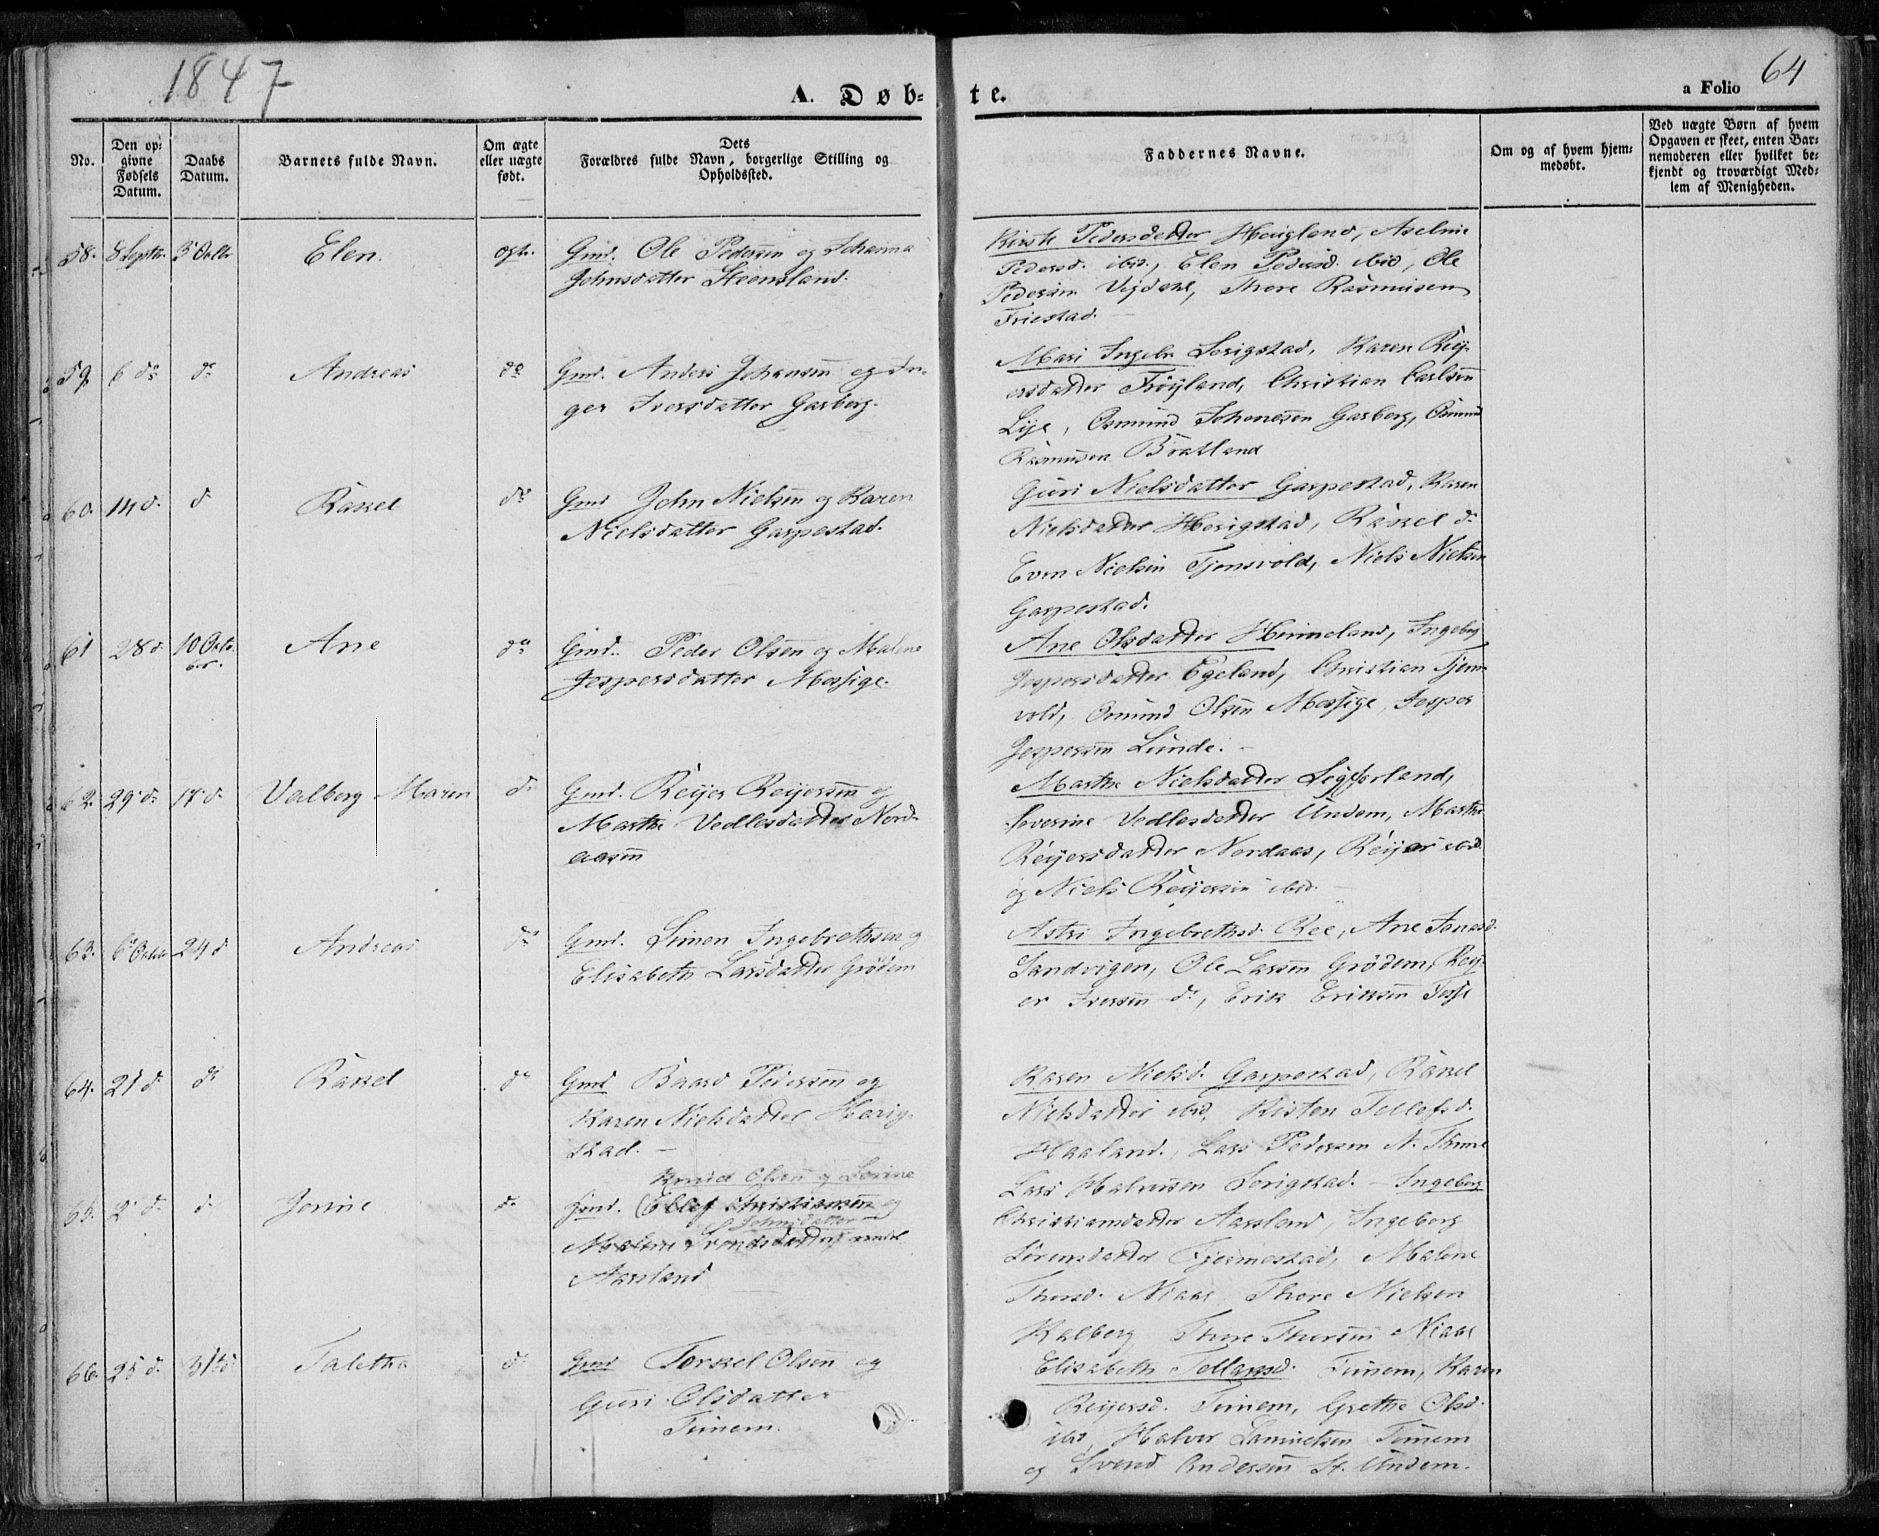 1847
A. Døb-
te.
a Folio 64
No.
Den op-
givne
Fødsels
Datum.
Daabs
Datum.
Barnets fulde Navn.
Om ægte
eller uægte
født.
Dets
Forældres fulde Navn, borgerlige Stilling og
Opholdssted.
Faddernes Navne.
Om og af hvem hjem-
medøbt.
Ved uægte Børn af hvem
Opgaven er skeet, enten Bar-
nemoderen eller hvilket be-
kjendt og troværdigt Med-
lem af Menigheden.
58. 8 Septbr. 3 Octbr Elen. ægte. Gmd. Ole Pedersen og Johanna
Johnsdatter Steensland.
Kirsti Pedersdatter Haugland, Axeline
Pedersd. ibid., Elen Pedersd. ibid, Ole
Pedersen Vigdahl, Thore Rasmusen
Friestad.
59. 6 do do Andreas do Gmd. Anders Johansen og In-
ger Iversdatter Garborg.
Mari Ingebr. Serigstad, Karen Rey-
ersdatter Frøyland, Christian Carlsen
Lye, Osmund Johanesen Garborg, Osmund
Rasmusen Bratland
60. 14 d. d Rakel do Gmd John Nielsen og Karen
Nielsdatter Garpestad.
Guri Nielsdatter Garpestad, Karen
Nielsdatter Herigstad, Rakel do
Even Nielsen Tjensvold, Niels Nielsen
Garpestad.
61 28 d. 10 Octo-
ber. Ane do Gmd. Peder Olsen og Malene
Jespersdatter Mossige.
Ane Olsdatter Hinneland, Ingeborg
Jespersdatter Egeland, Christian Tjens-
vold, Osmund Olsen Mossige, Jesper
Jespersen Lunde.
62. 29 d. 17 d. Valborg Maren d. Gmd. Reijer Reijersen og
Marthe Vedlesdatter Nord-
aasen
Marthe Nielsdatter Sigfserland,
Severine Vedlesdatter Undem, Marthe
Reijersdatter Nordaas, Reijer ibid.
og Niels Reijersen ibid.
63. 6 Octobr 24 d Andreas do Gmd. Simen Ingebrethsen og
Elisabeth Larsdatter Grødem
Astri Ingebrethsd. Ree, Ane Jonasd.
Sandvigen, Ole Larsen Grødem, Reij-
er Iversen do, Erik Eriksen Fosse
64. 21 d. do Rakel do Gmd Baard Pedersen og
Karen Nielsdatter Herig-
stad.
Karen Nielsd. Garpestad, Rakel
Nielsdatter ibid, Kisten Tellefsd.
Haaland., Lars Pedersen N. Thime
Lars Halvorsen Serigstad.
65. 2 d. d. Jorine d. Knud Olsen og Serine
Gmd. (Ellef Christiansen og
Johnsdatter
Malene Svendsdatter)
Aarsland
Ingeborg
Christiansdatter Aarsland, Ingeborg
Sørensdatter Fjermestad, Malene
Thorsd. Niaae Thore Nielsen
Kalberg Thore Thorsen Niaae
66. 25 d. 31te Taletha d. Gmd Torkel Olsen og
Guri Olsdatter
Tunem.
Elisabeth Tollansd. Tunem, Karen
Reijersd. Tunem, Grethe Olsd.
ibid, Halvor Samuelsen Tunem
og Svend Andersen St. Undem.